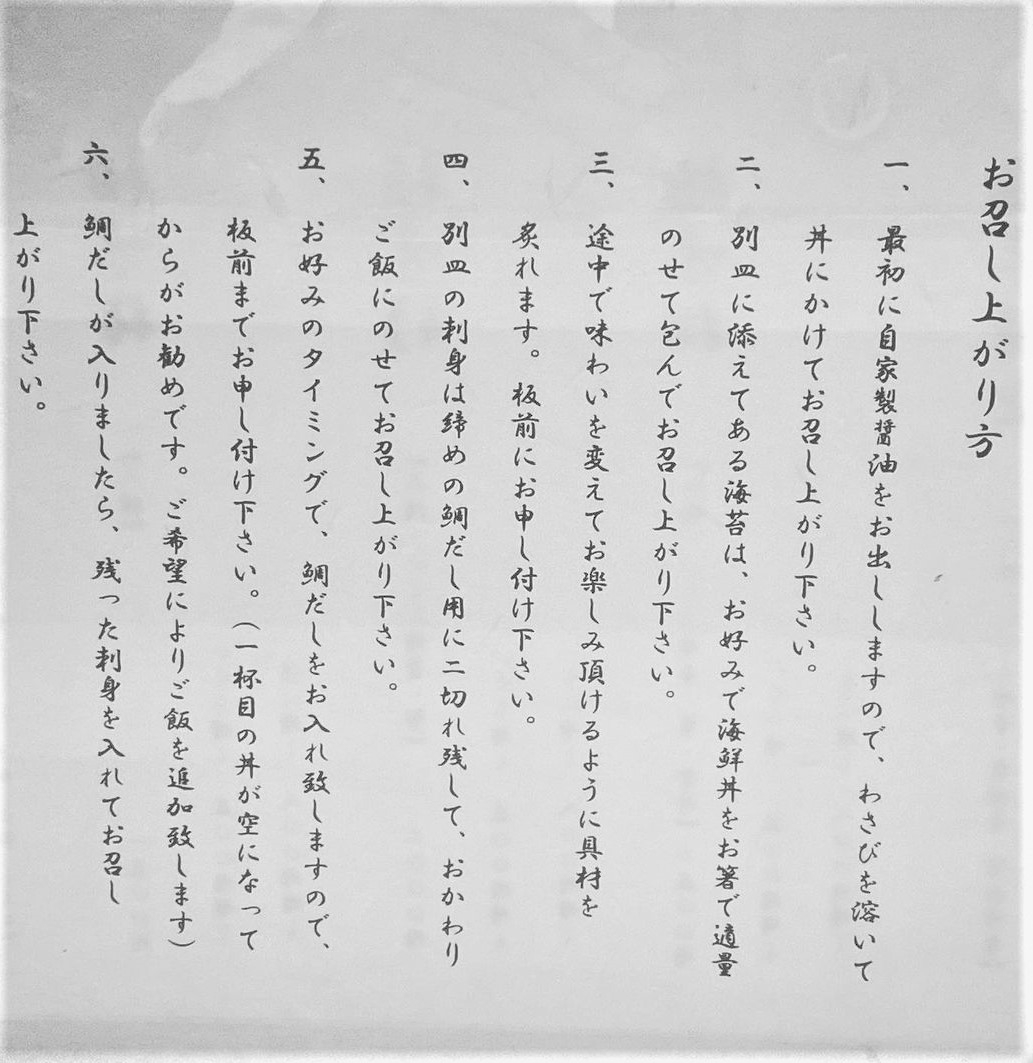 お召し上がり方
一、最初に自家製醤油をお出ししますので、わさびを溶いて
丼にかけてお召し上がり下さい。
二、別皿に添えてある海苔は、お好みで海鮮丼をお箸で適量
のせて包んでお召し上がり下さい。
三、途中で味わいを変えてお楽しみ頂けるように具材を
炙れます。板前にお申し付け下さい。
四、別皿の刺身は締めの鯛だし用に二切れ残して、おかわり
ご飯にのせてお召し上がり下さい。
五、お好みのタイミングで、鯛だしをお入れ致しますので、
板前までお申し付け下さい。（一杯目の丼が空になって
からがお勧めです。ご希望によりご飯を追加致します）
六、鯛だしが入りましたら、残った刺身を入れてお召し
上がり下さい。